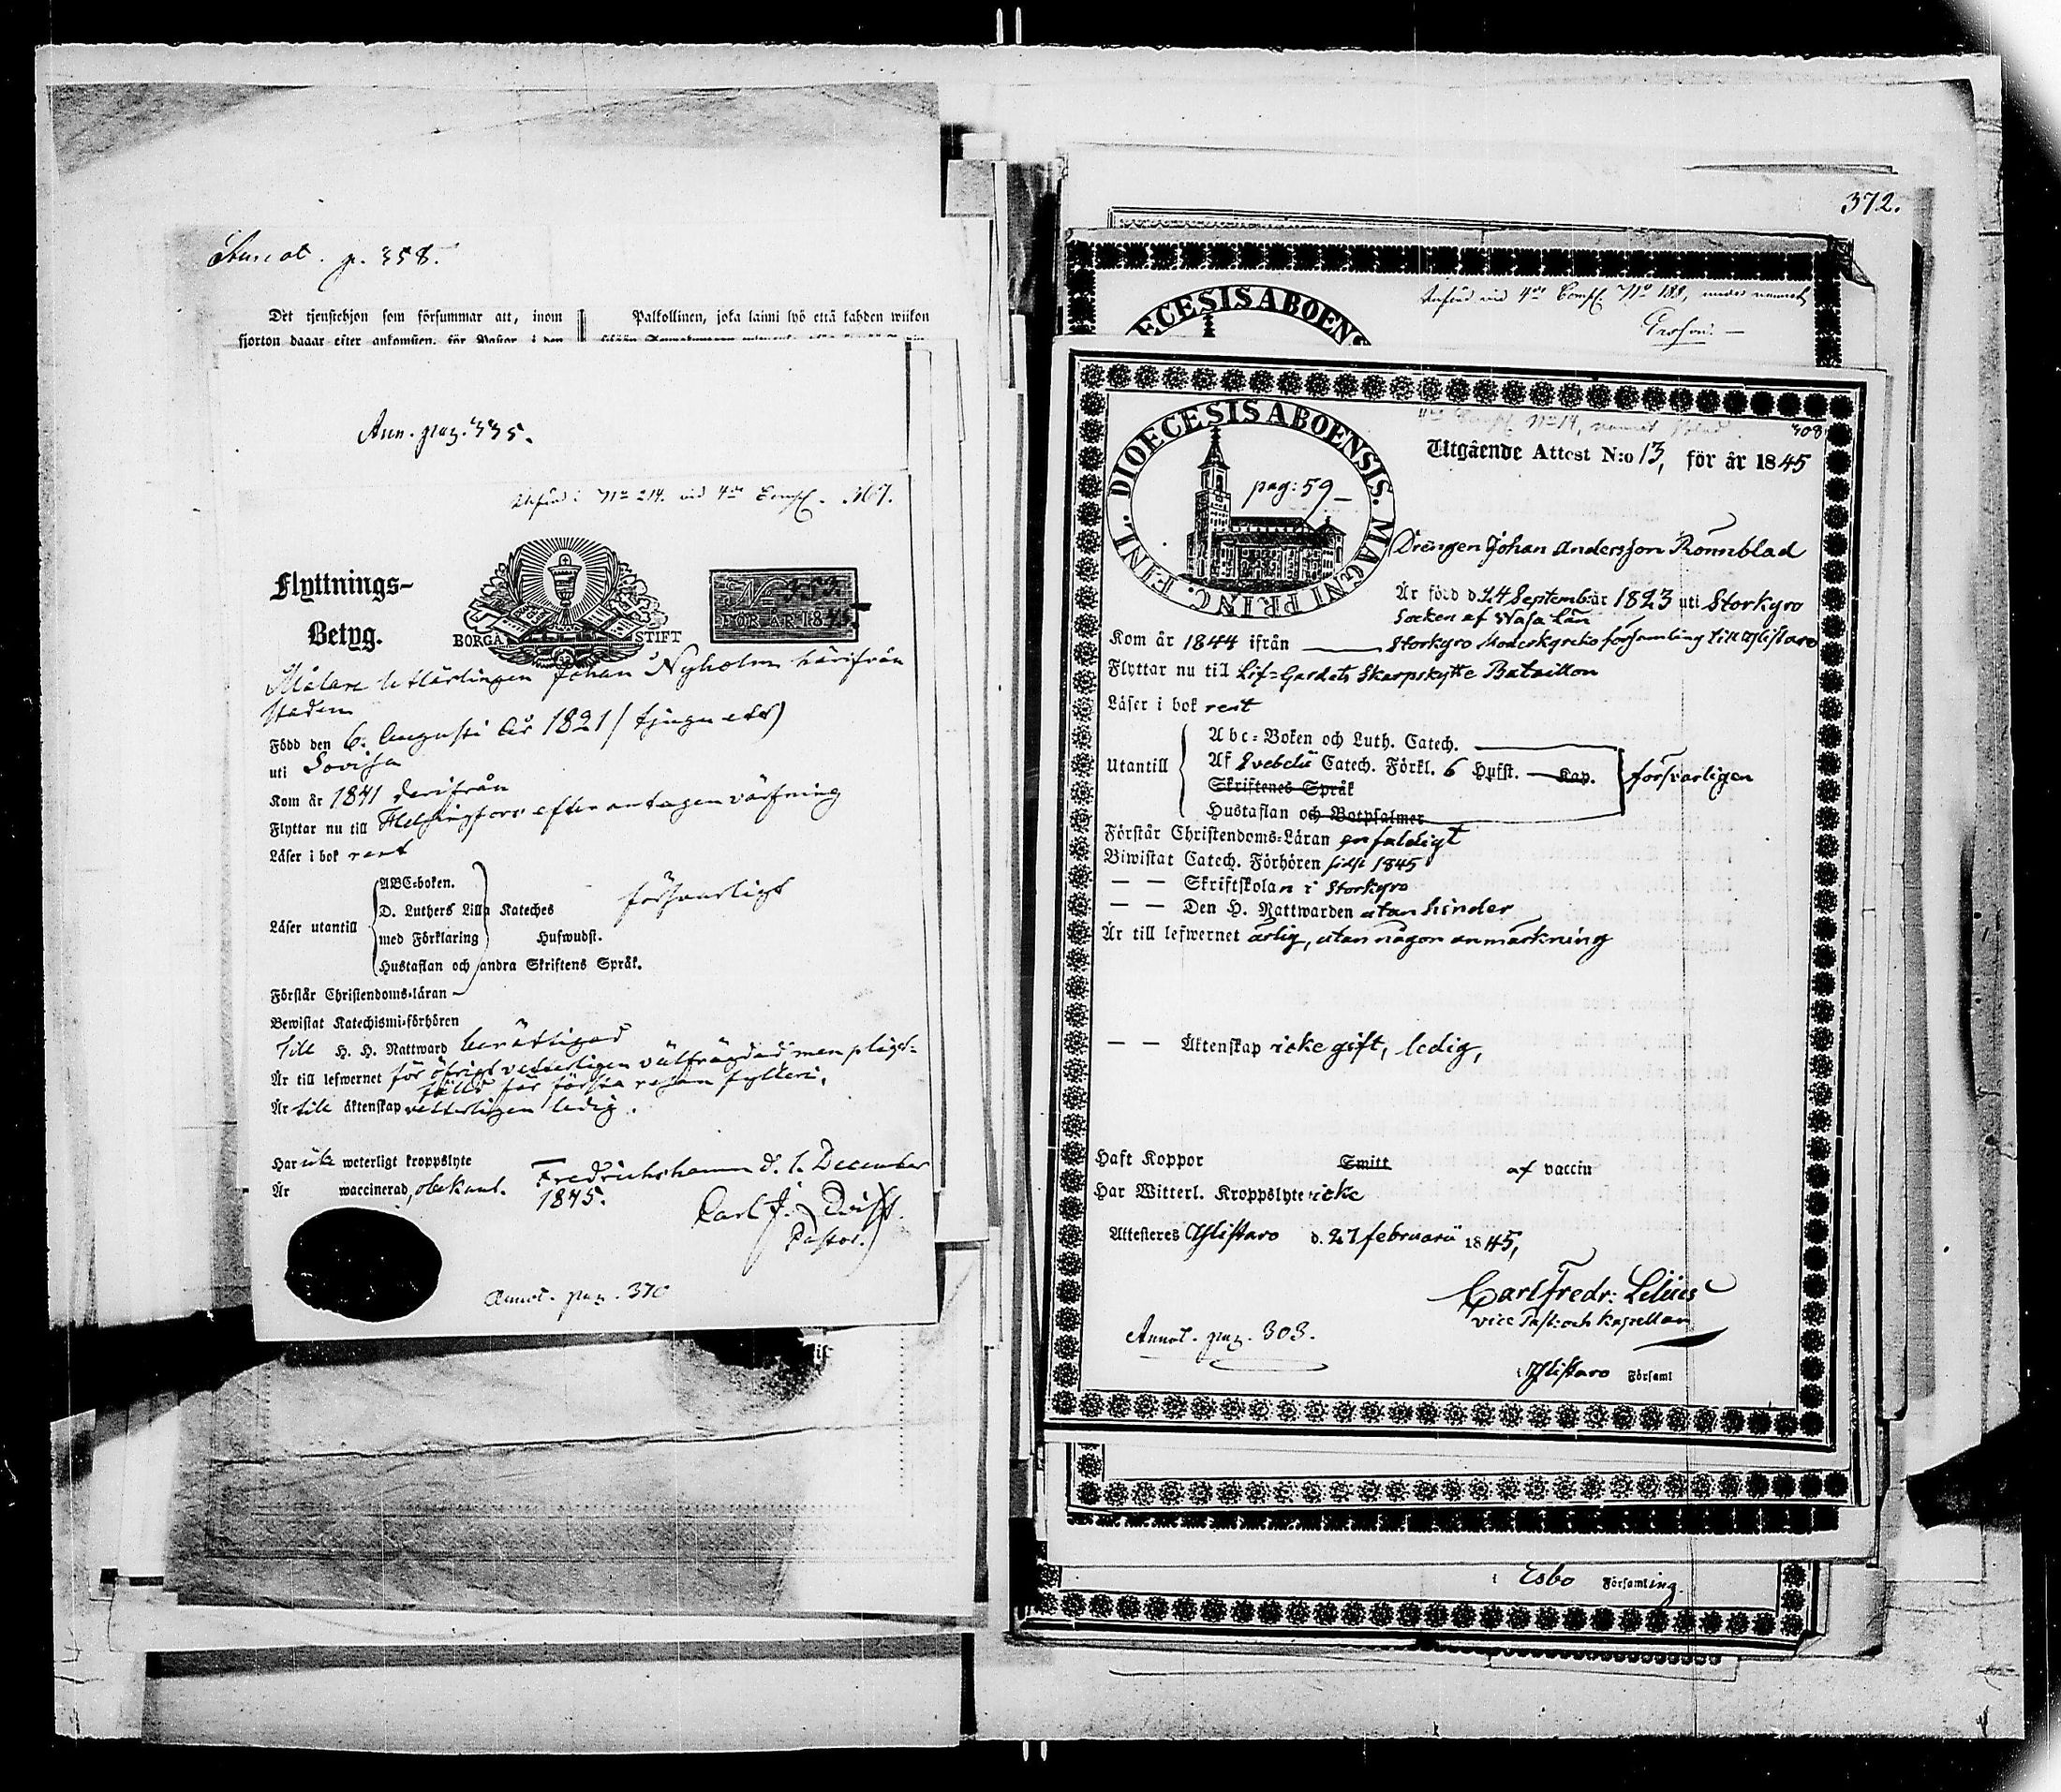 Annot. p. 358.
Det tjenstehjon som försummar att, inom
fjorton dagar efter ankomsten, för Pastor i den
Palkollinen, joka laimi lyö että kahden wiikon
Ann. pag. 335.
Införd i No 214. vid 4de Comp. 367.
Flyttnings-
Betyg.
BORGÅ STIFT
No 353.
FÖR ÅR 1845.
Målare Utlärlingen Johan Nyholm härifrån
staden
Född den 6. Augusti år 1821 / tjugu ett)
uti Lovisa
Kom år 1841 derifrån
Flyttar nu till Helsingfors efter antagen värfning
Läser i bok rent
Läser utantill
ABC-boken.
D. Luthers Lilla Kateches
med Förklaring Hufwudst.
Hustaflan och andra Skriftens Språk.
försvarligt
Förstår Christendoms-läran
Bewistat Katechismi-förhören
Till H. H. Nattward berättigad
Är till lefwernet för öfrigt vetterligen välfrägdad men pligt-
fälld för första resan fylleri.
Är till äktenskap vetterligen ledig.
Har icke weterligt kroppslyte
Är waccinerad, obekant.
Fredrickshamn d. 1. December
1845.
Carl J.
Pastor.
Annot. pag. 370
372.
DIOECESIS ABOENSIS
Införd vid 4de Comp. No 188, under namnet
308
4de Comp. No 14, namnet
DIOECESIS ABOENSIS. MAGNI PRINC. FINL.
pag: 59
Utgående Attest N:o 13, för år 1845
Drengen Johan Andersson Rönnblad
Är född d. 24 September år 1823 uti Storkyro
Socken af Wasa Län
Kom år 1844 ifrån Storkyro Moderkyrko församling till Ylistaro
Flyttar nu til Lif-Gardets Skarpskytte Bataillon
Läser i bok rent
Utantill
Abc-Boken och Luth. Catech.
Af Svebelii Catech. Förkl. 6 Hufst. Kap.
Skriftenes Språk
Hustaflan och Botpsalmer
försvarligen
Förstår Christendoms-Läran enfaldigt
Biwistat Catech. Förhören sidst 1845
— — Skriftskolan i Storkyro
— — Den H. Nattwarden utan hinder
Är till lefwernet ärlig, utan någon anmärkning
— — Äktenskap icke gift, ledig,
Haft Koppor Smitt af vaccin
Har Witterl. Kroppslyte icke
Attesteres Ylistaro d. 27 februarii 1845,
Carl Fredr: Lilius
vice Past: och Kapellan
Annot. pag. 303.
i Ylistaro Församl
i Esbo Församling.